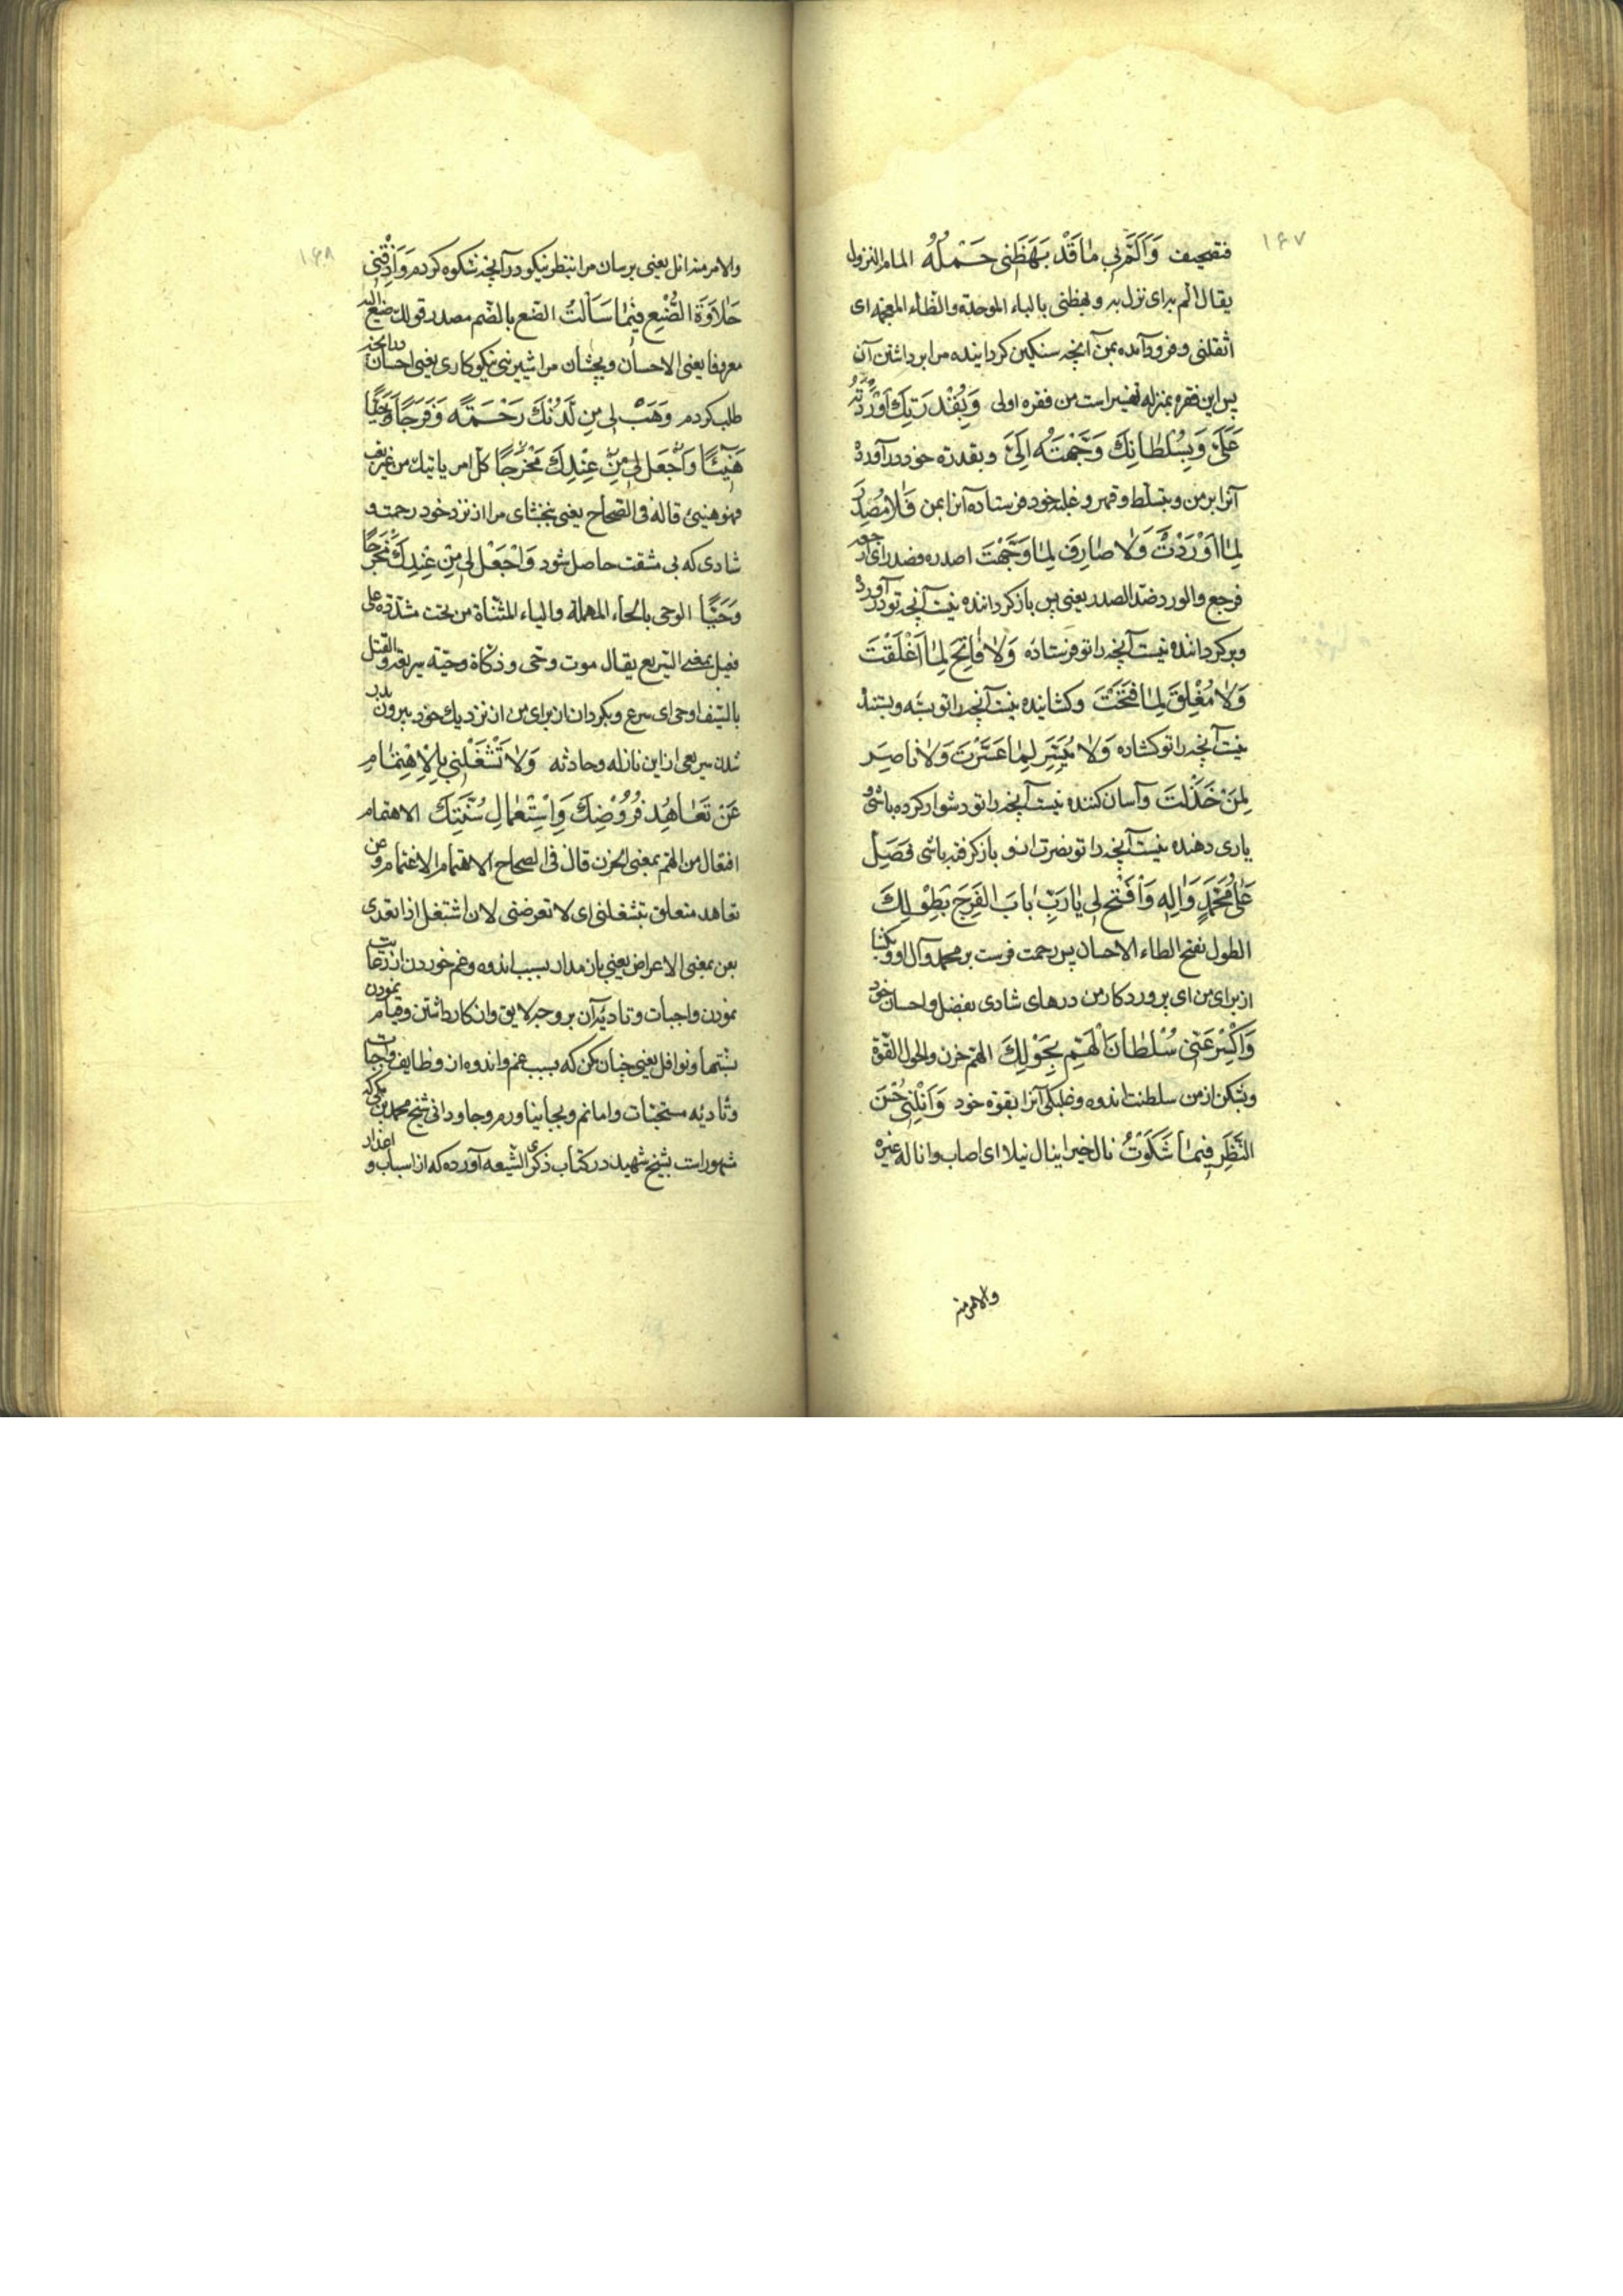 ۱۶۷
فتصحیف وَاَلَمَّ بِی مٰا قَدْ بَهَظَنِی حَمْلُهُ الالمام النزول
یقال الم به ای نزل به و بهظنی بالباء الموحدة والظاء المعجمه ای
اثقلنی و فرود آمده بمن آنچه سنکین کردانیده مرا برداشتن آن
پس این فقره بمنزله تفسیر است من فقره اولی وَبِقُدْرَتِکَ اَوْرَدْتَهُ
عَلَیَّ وَبِسُلْطٰانِکَ وَجَّهْتَهُ اِلَیَّ و بقدرة خود درآورده
آنرا بر من و بتسلط و قهر و غلبه خود فرستاده آنرا بمن فَلٰا مُصْدِرَ
لِمٰا اَوْرَدْتَ وَلٰا صٰارِفَ لِمٰا وَجَّهْتَ اصدره فصدر ای ارجعه
فرجع والورد ضد الصدر یعنی پس بازکرداننده نیست آنچه تو درآورده
و برکرداننده نیست آنچه را تو فرستاده وَلٰا فٰاتِحَ لِمٰا اَغْلَقْتَ
وَلٰا مُغْلِقَ لِمٰا فَتَحْتَ و کشاینده نیست آنچه را تو بسته و بستنده
نیست آنچه را تو کشاده وَلٰا مُیَسِّرَ لِمٰا عَسَّرْتَ وَلٰا نٰاصِرَ
لِمَنْ خَذَلْتَ و آسان کننده نیست آنچه را تو دشوار کرده باشی و
یاری دهنده نیست آنچه را تو نصرت از او بازکرفته باشی فَصَلِّ
عَلیٰ مُحَمَّدٍ وَاٰلِهِ وَافْتَحْ لِی یٰا رَبِّ بٰابَ الْفَرَجِ بِطَوْلِکَ
الطول بفتح الطاء الاحسان پس رحمت فرست بر محمد و آل او و بکشا
از برای من ای پروردکار من درهای شادی بفضل و احسان خود
وَاکْسِرْ عَنِّی سُلْطٰانَ الْهَمِّ بِحَوْلِکَ الهم حزن والحول القوة
و بشکن از من سلطنت اندوه و غلبکی آنرا بقوة خود وَاَنِلْنِی حُسْنَ
النَّظَرِ فِیمٰا شَکَوْتُ نال خیرا ینال نیلا ای اصاب و اناله غیره
والامر منه
۱۶۸
والامر منه انل یعنی برسان مرا بنظر نیکو در آنچه شکوه کردم وَاَذِقْنِی
حَلٰاوَةَ الصُّنْعِ فِیمٰا سَاَلْتُ الصنع بالضم مصدر قولك صنع الیه
معروفا یعنی الاحسان و بچشان مرا شیرینی نیکوکاری یعنی احسان در آنچه
طلب کردم وَهَبْ لِی مِنْ لَدُنْکَ رَحْمَةً وَفَرَجًا
هَنِیئًا وَاجْعَلْ لِی مِنْ عِنْدِکَ مَخْرَجًا کل امر یاتیك من غیر تعب
فهو هنیئ قاله فی الصحاح یعنی ببخشای مرا از نزد خود رحمت و
شادی که بی مشقت حاصل شود وَاجْعَلْ لِی مِنْ عِنْدِکَ مَخْرَجًا
وَحِیًّا الوحی بالحاء المهملة والیاء المثناة من تحت مشددة علی
فعیل بمعنی السریع یقال موت وحی و ذکاة وحیّة سریعه والقتل
بالسیف اوحی ای سرع و بکردان از برای من از نزدیك خود بیرون
شدن سریعی از این نازله و حادثه وَلٰا تَشْغَلْنِی بِالْاِهْتِمٰامِ
عَنْ تَعٰاهُدِ فُرُوضِکَ وَاسْتِعْمٰالِ سُنَّتِکَ الاهتمام
افتعال من الهم بمعنی الحزن قال فی الصحاح الاهتمام الاغتمام و عن
تعاهد متعلق بتشغلنی ای لا تعرضنی لان اشتغل اذا تعدی
بعن بمعنی الاعراض یعنی باز مدار بسبب اندوه و غم خوردن از رعایت
نمودن واجبات و تادیه آن بر وجه لایق و انکار داشتن و قیام نمودن
بسنتها و نوافل یعنی چنان مکن که بسبب غم و اندوه از وظایف واجبات
و تادیه مستحبات وامانم و بجا نیاورم و جاودانی شیخ محمد بن مکی که
مشهور است بشیخ شهید در کتاب ذکری الشیعه آورده که از اسباب و اعذار